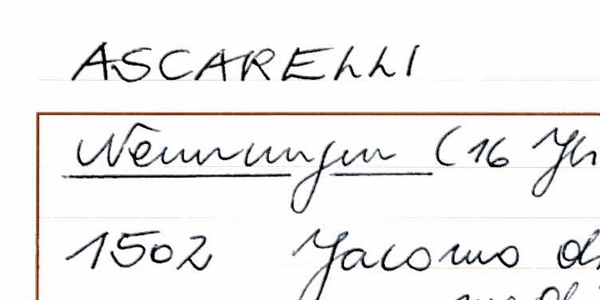 ASCARELLI
Nennungen (16 Jh
1502 Jacomo di